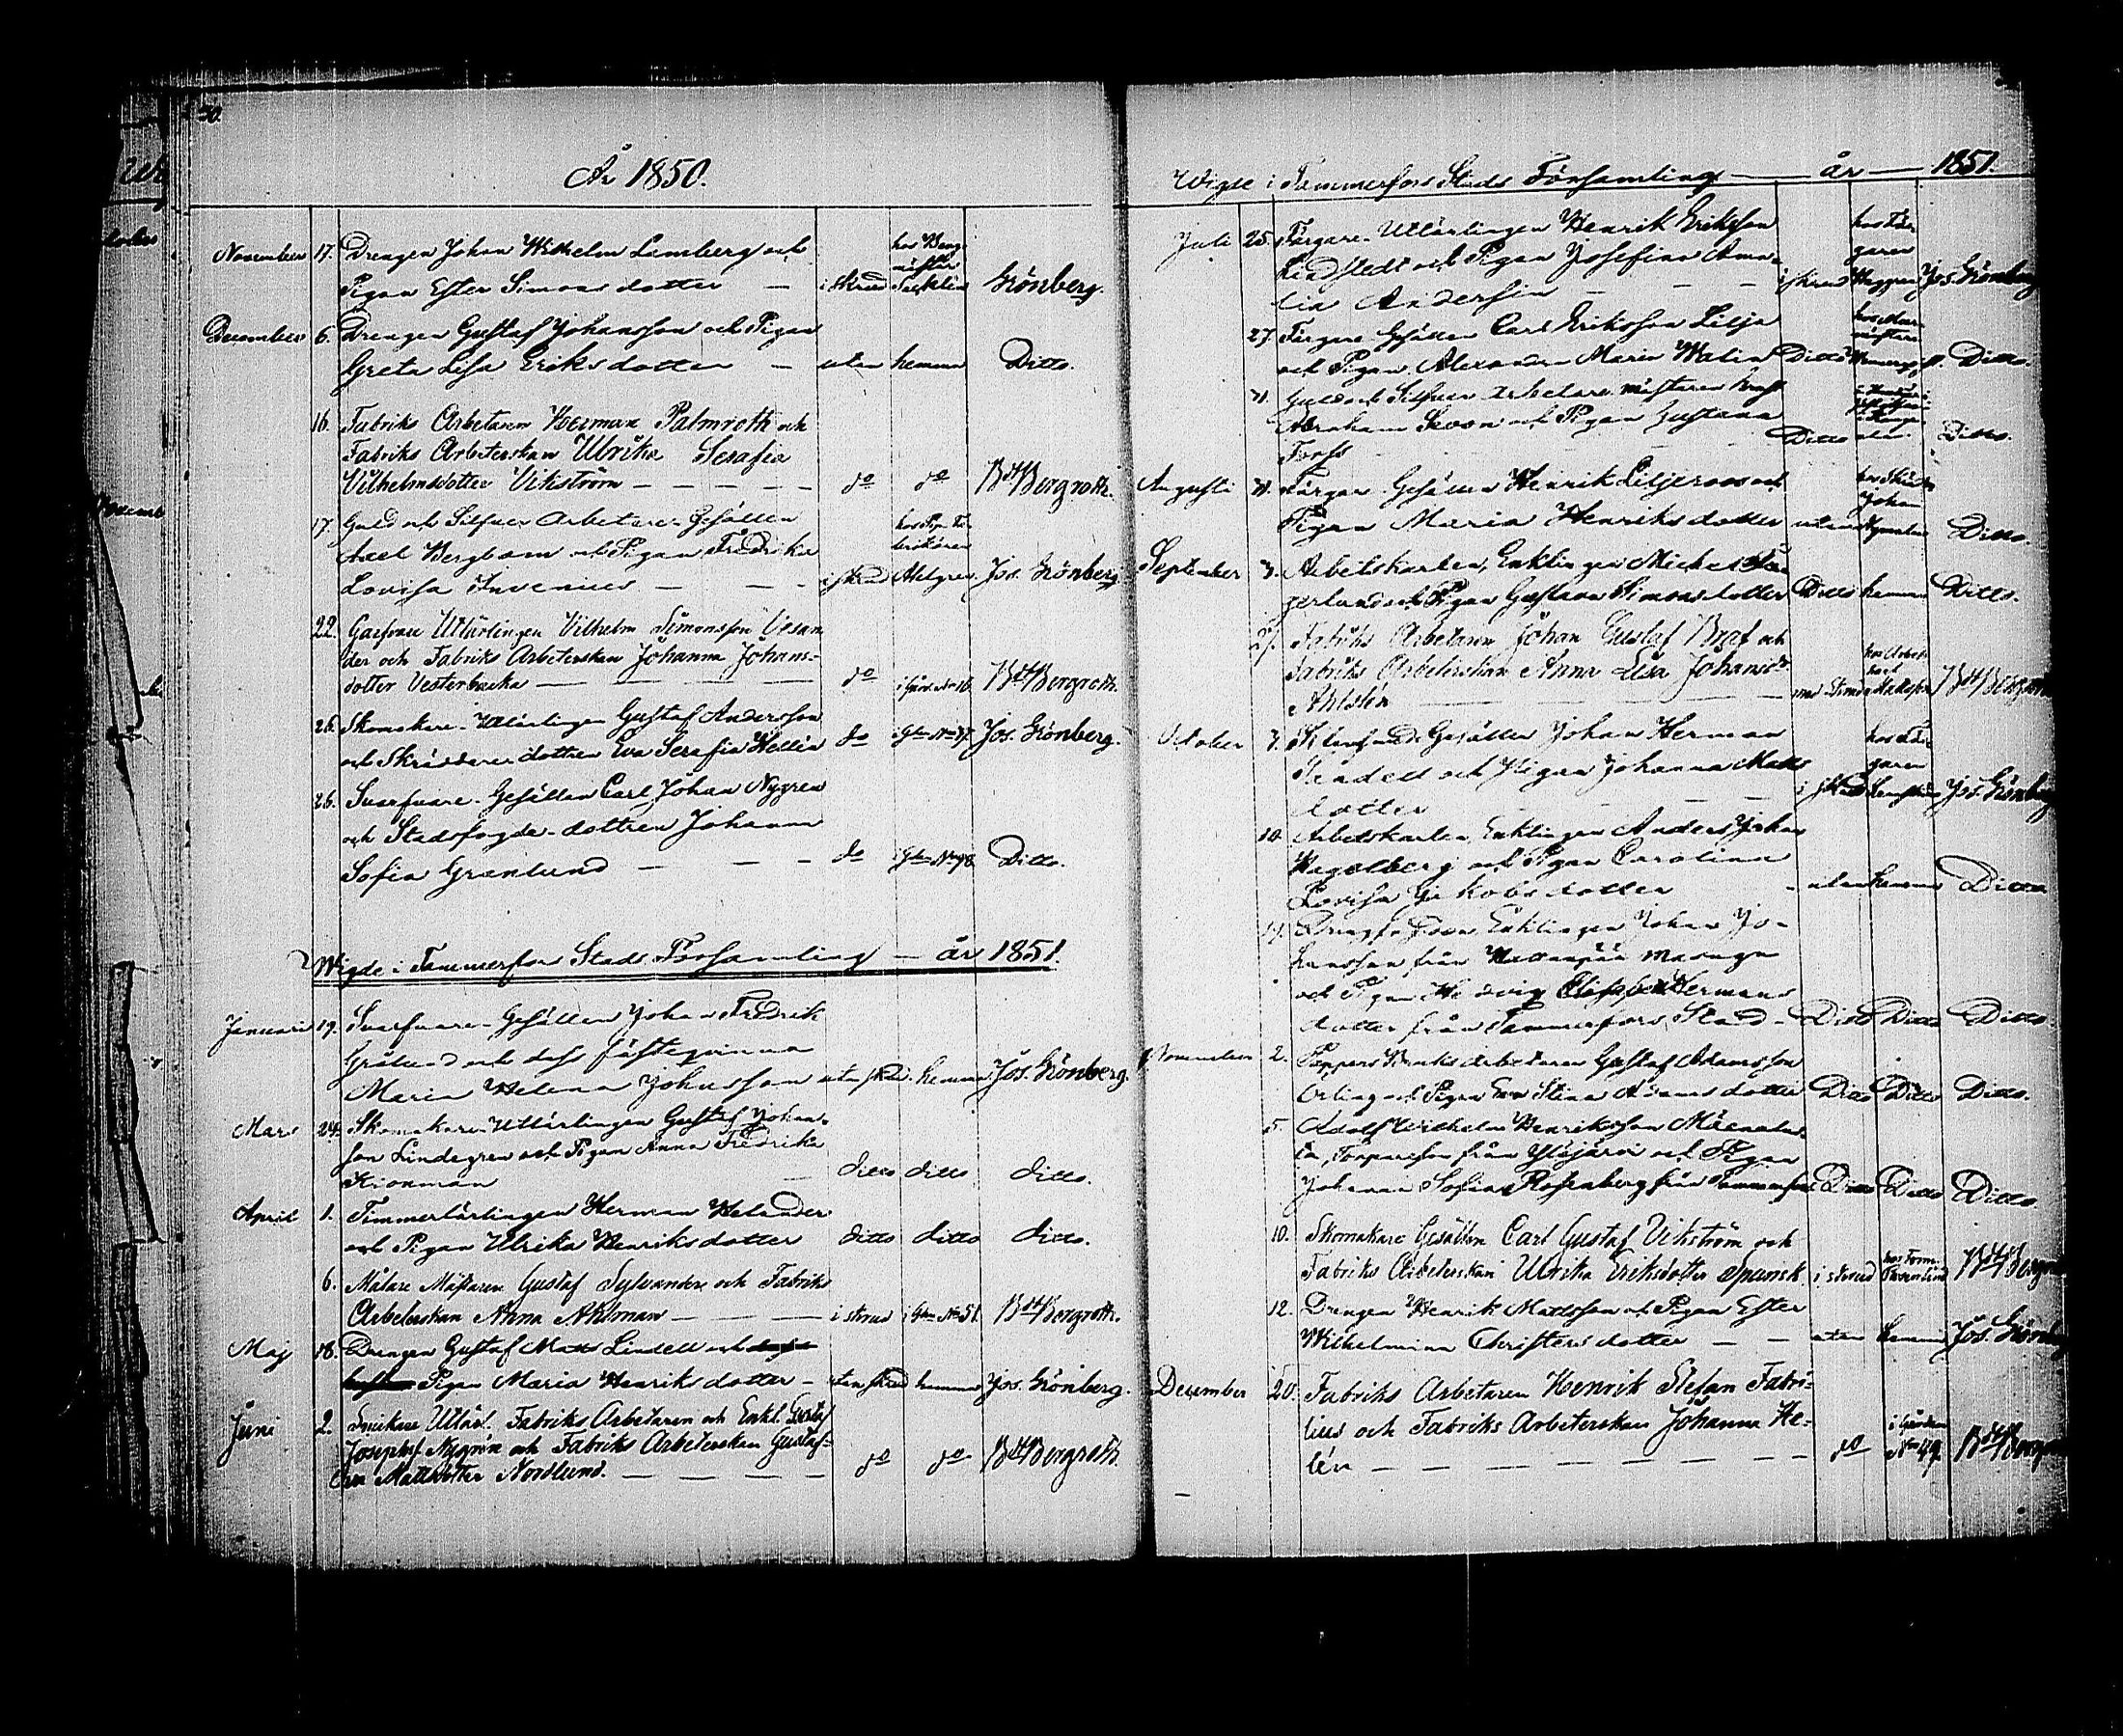 År 1850.
November 17. Drengen Johan Wilhelm Lemberg och
Pigan Ester Simonsdotter — i skrud Grönberg.
December 6. Drengen Gustaf Johansson och Pigan
Greta Lisa Eriksdotter — utan hemma Ditto.
16. Fabriks Arbetaren Herman Palmroth och
Fabriks Arbeterskan Ulrika Serafia
Vilhelmsdotter Vikström — — — do do Bergroth.
17. Guld och Silfver Arbetare Gesällen
Axel Bergbom och Pigan Fredrika
Lovisa Invenius — — — i skrud Ahlgren. Jos. Grönberg
22. Garfvare Utlärlingen Vilhelm Simonsson Vesan
der och Fabriks Arbeterskan Johanna Johans=
dotter Vesterbacka — do Bergroth.
26. Skomakare-Utlärlingen Gustaf Andersson
och Skräddaredottren Eva Serafia Hellén do Jos. Grönberg.
26. Svarfvare-Gesällen Carl Johan Nygren
och Stadsfogde-dottren Johanna
Sofia Grönlund — — — do Ditto.
Wigde i Tammerfors Stads Församling — år 1851.
Januari 19. Svarfvare-Gesällen Johan Fredrik
Grölund och dess fästeqvinna
Maria Helena Johnsson utan skrud hemma Jos. Grönberg.
Mars 24. Skomakare-Utlärlingen Gustaf Johans-
son Lindegren och Pigan Anna Fredrika
Kronman — ditto ditto ditto.
April 1. Timmerlärlingen Herman Helander
och Pigan Ulrika Henriksdotter ditto ditto ditto.
6. Målare Mästaren Gustaf Sylvander och Fabriks
Arbeterskan Anna Ahlman — — — i skrud i Gården No 51. Bergroth.
Maj 18. Drengen Gustaf Matts Lindell och
Pigan Maria Henriksdotter — utan skrud hemma Jos. Grönberg.
Juni 2. Snickare Utlärl. Fabriks Arbetaren och Enkl. Gustaf
Josephsf Nygrén och Fabriks Arbeterskan Gustaf=
va Mattsdotter Nordlund. — — — do do Bergroth.
Wigde i Tammerfors Stads Församling — år — 1851.
Juli 25. Färgare-Utlärlingen Henrik Eriksson
Lindstedt och Pigan Josefina Ama-
lia Andersin — — — i skrud Jos. Grönberg
27. Färgare Gesällen Carl Eriksson Lilja
och Pigan Alexandra Maria Walin Ditto Ditto.
Guld och Silfver Arbetare mästaren
Abraham och Pigan Gustava
Forss — Ditto Ditto.
Augusti Färgare-Gesällen Henrik Liljeroos och
Pigan Maria Henriksdotter utan Ditto.
September Arbetskarlen, Enklingen Michel
och Pigan Gustava Simonsdotter Ditto hemma Ditto.
27. Fabriks Arbetaren Johan Gustaf Braf och
Fabriks Arbeterskan Anna Lisa Johansd:r
Ahlstén — Bergroth
October Gesällen Johan Herman
och Pigan Johanna Matts
dotter — — — i skrud Jos. Grönberg
10. Arbetskarlen, Enklingen Anders Johan
Hagelberg och Pigan Carolina
Lovisa Jakobsdotter — utan hemma Ditto
Enklingen Johan Jo-
hansson från
och Pigan Hedvig Hermans
dotter från Tammerfors Stad — Ditto Ditto Ditto
November 2. Pappersbruksarbetaren Gustaf Adamsson
Orling och Pigan Eva Stina Adamsdotter Ditto Ditto Ditto.
5. Adolf Wilhelm Henriksson
Torpareson från Ylöjärvi och Pigan
Johanna Sofia Rosenberg från Tammerfors Ditto Ditto Ditto.
10. Skomakare Gesällen Carl Gustaf Vikström och
Fabriks Arbeterskan Ulrika Eriksdotter Spanisk i skrud
12. Drengen Henrik Mattsson och Pigan Ester
Wilhelmina Christersdotter — — utan hemma Jos. Grönberg
December 20. Fabriks Arbetaren Henrik Stefan Fabri=
lius och Fabriks Arbeterskan Johanna He=
lén — — — do i Gården No 49.